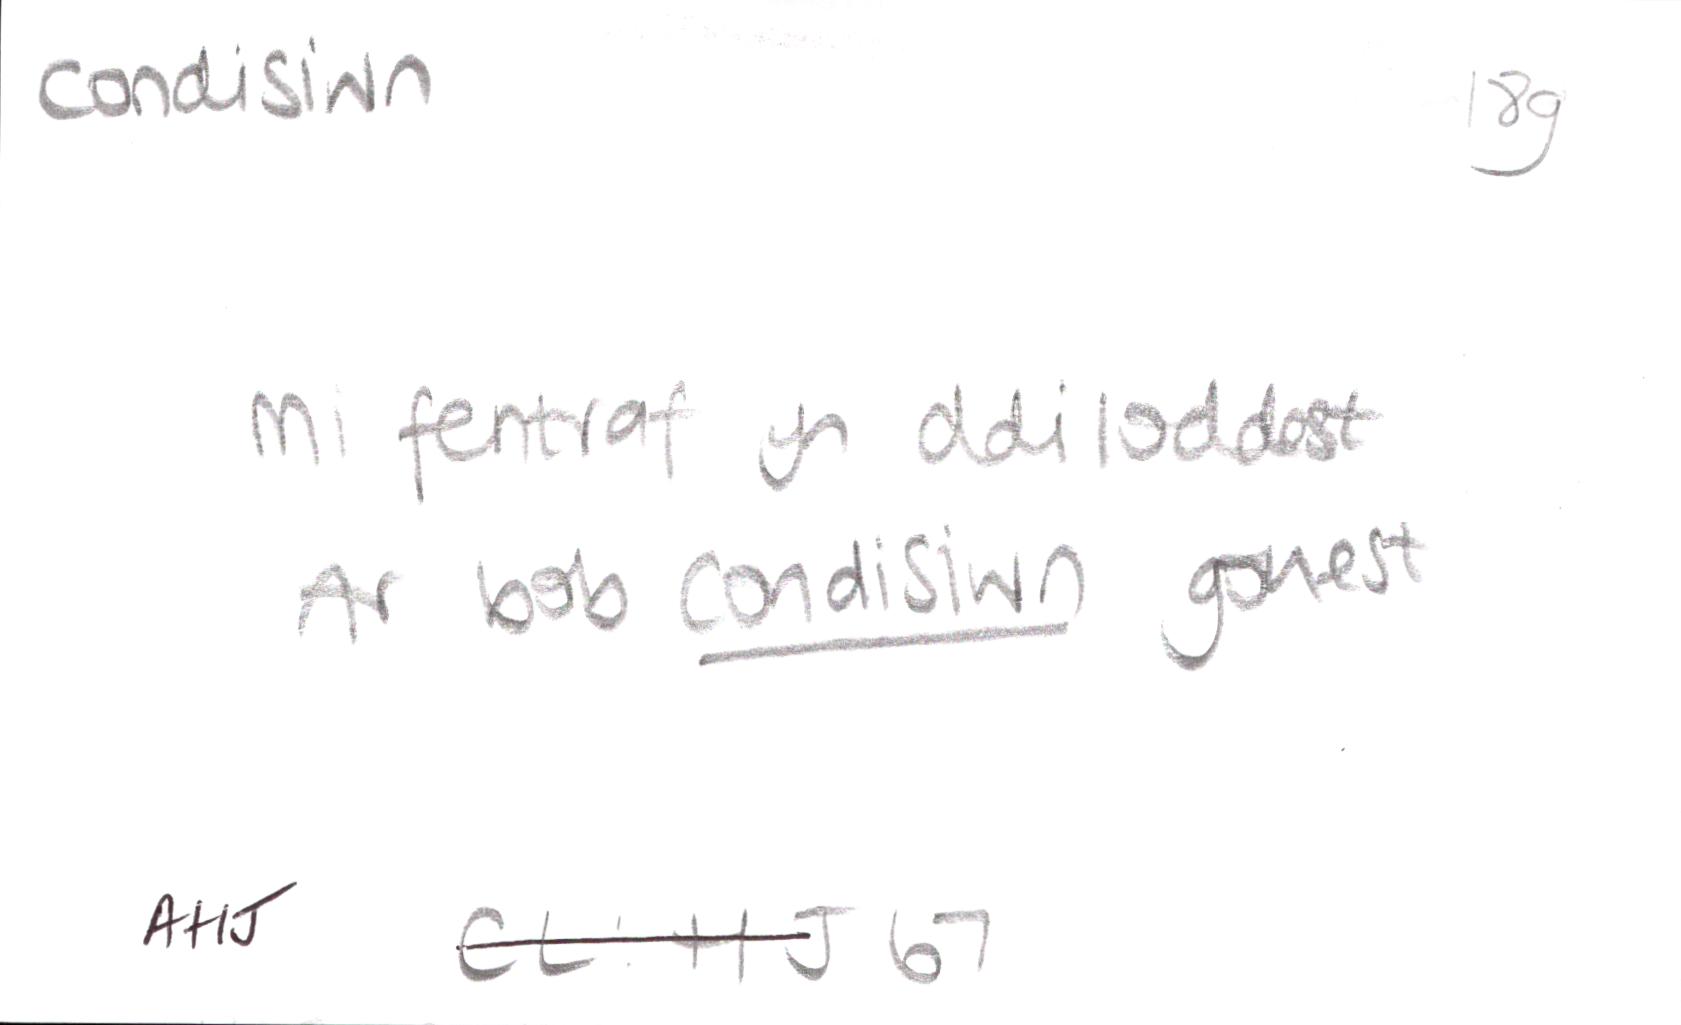 Condisiwn 18g
Mi fentraf yn ddiloddost
Ar bob Condisiwn gonest
AHJ CL: HJ 67